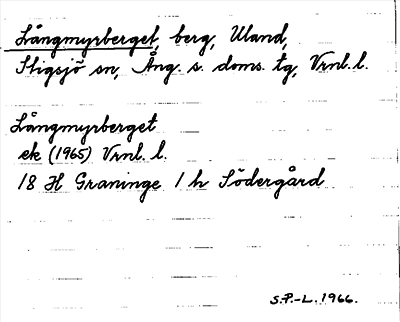 Långmyrberget, berg, Uland,
Stigsjö sn, Ång. s. doms. tg, Vrnl. l.
Långmyrberget
ek (1965) Vrnl. l.
18 H Graninge 1 h Södergård
S.P.-L. 1966.